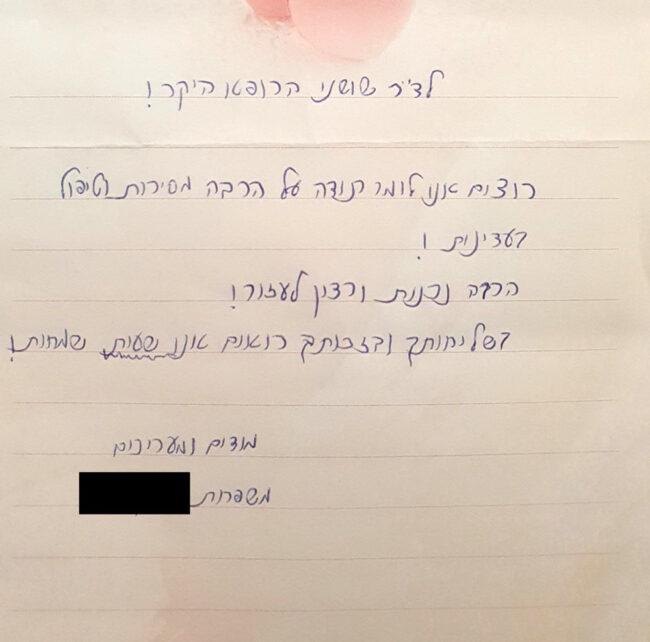 לד"ר שושני הרופא היקר!
רוצים אנו לומר תודה על הרבה מסירות וטיפול
בעדינות!
הרבה נכונות ורצון לעזור!
בשליחותך ובזכותך רואים אנו שעות שמחות!
מודים ומעריכים
משפחת